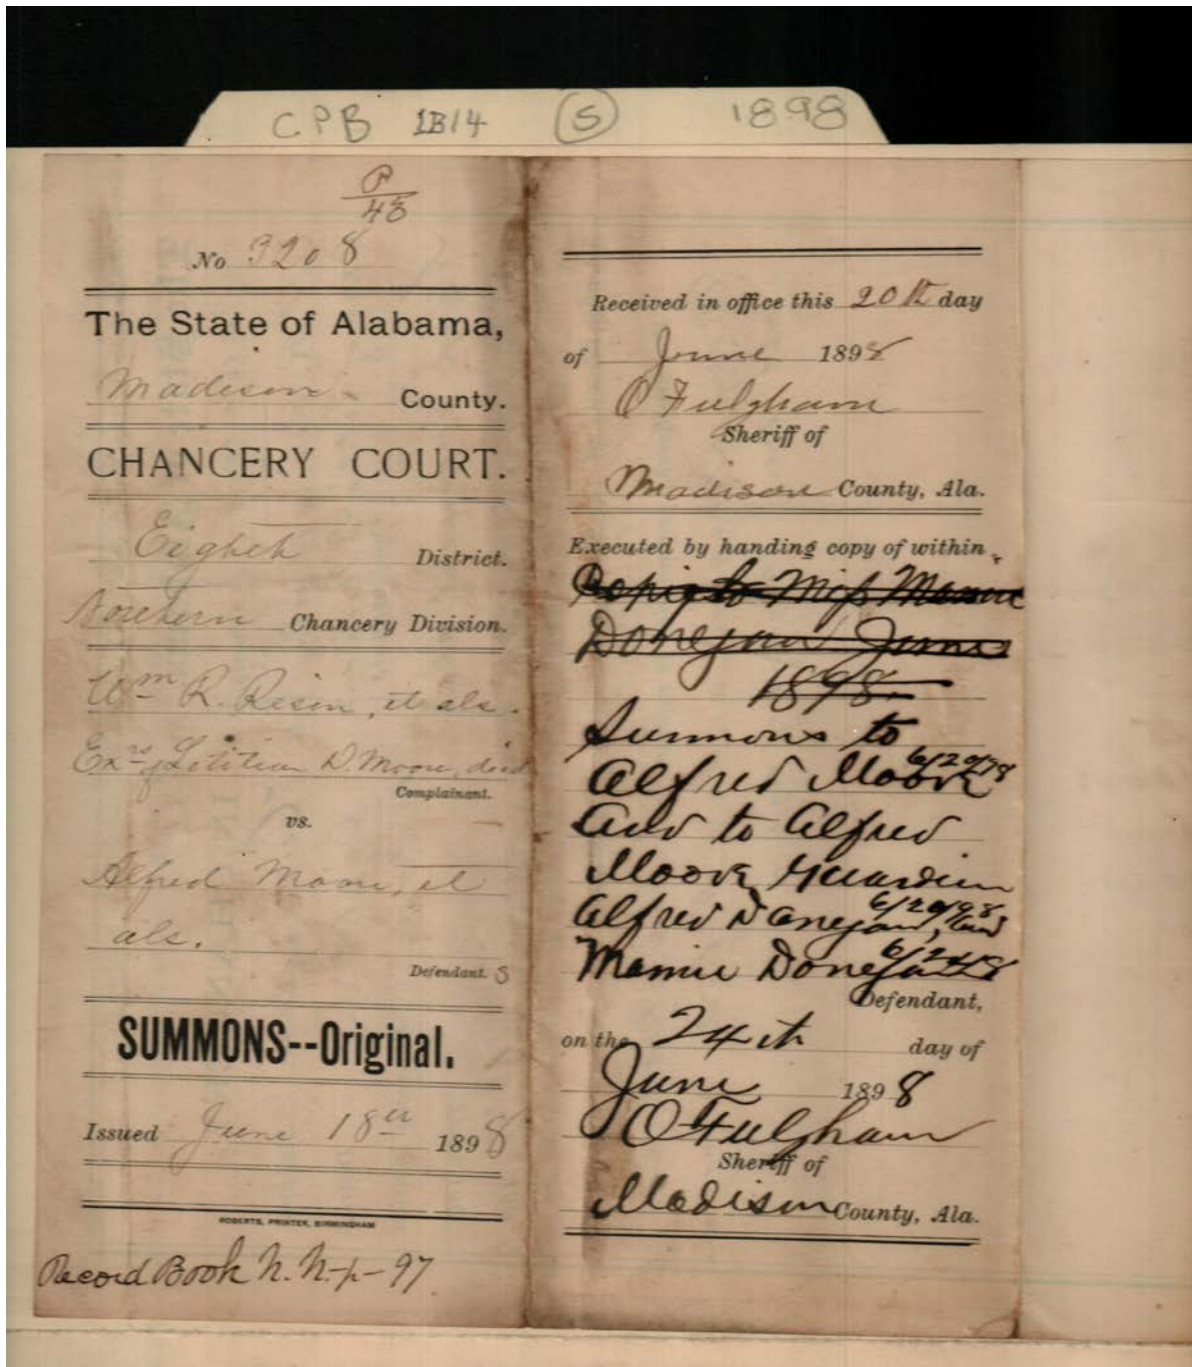 CPB 1B14 (S) 1898
P
48
No 3208
The State of Alabama,
Madison County.
CHANCERY COURT.
Eighth District.
Northern Chancery Division.
Wm R. Rison, et als.
Exrs of Letitia D. Moore, decd
Complainant.
vs.
Alfred Moore, et
als.
Defendant. s
SUMMONS--Original.
Issued June 18th 1898
ROBERTS, PRINTER, BIRMINGHAM
Record Book N. N-p-97
Received in office this 20th day
of June 1898
O Fulgham
Sheriff of
Madison County, Ala.
Executed by handing copy of within
Copies to Miss Mamie
Donegan June
1898
Summons to
Alfred Moore 6/20/98
and to Alfred
Moore Guardian
Alfred Donegan, 6/20/98 and
Mamie Donegan 6/24/98
Defendant,
on the 24th day of
June 1898
O Fulgham
Sheriff of
Madison County, Ala.